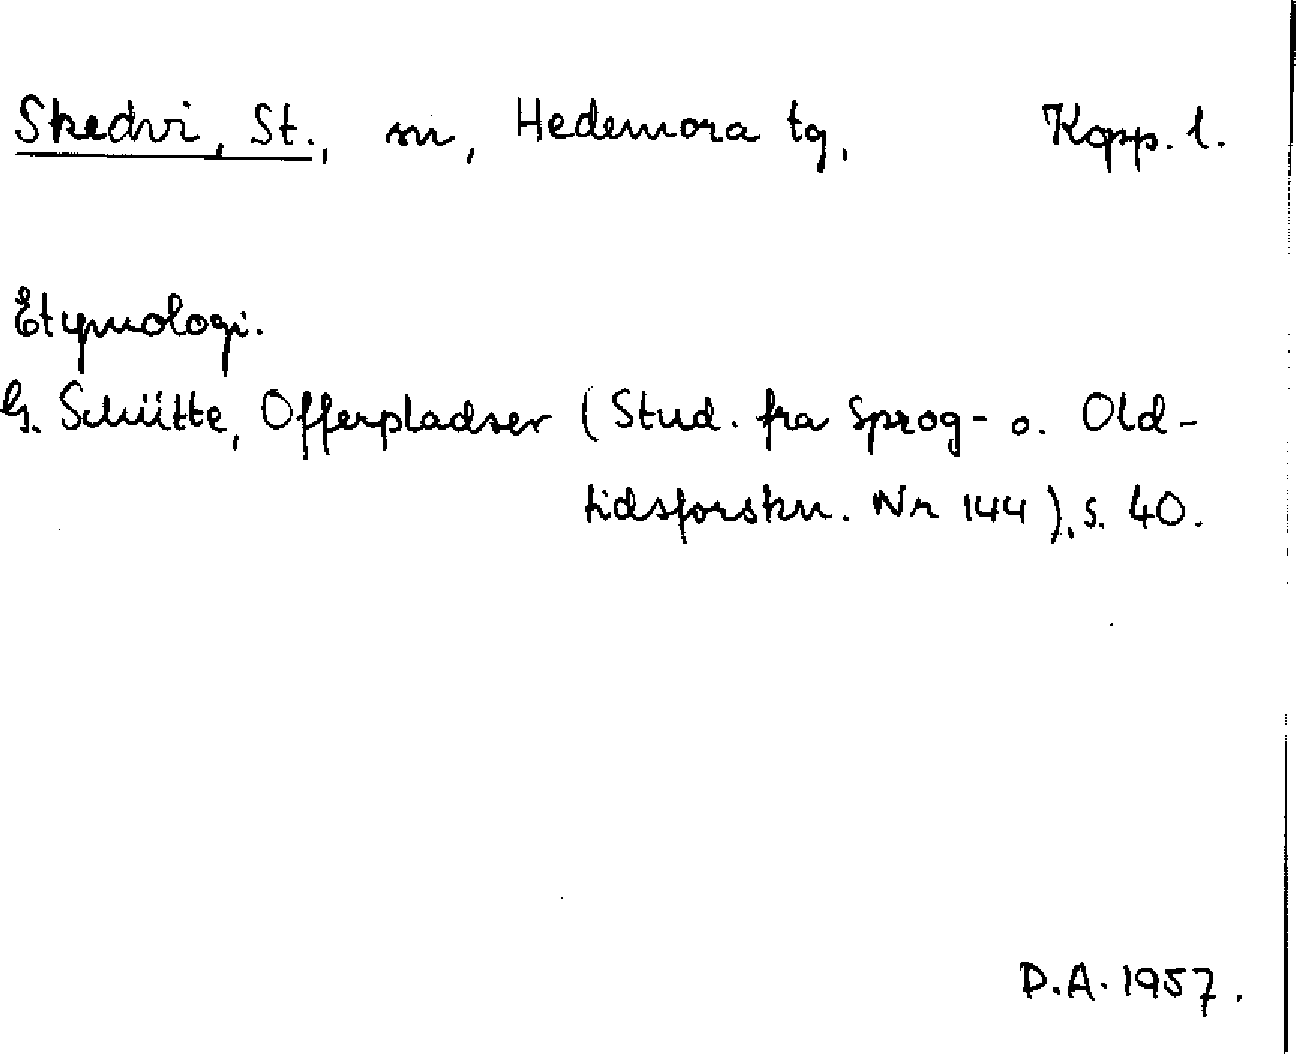 Skedvi, St., sn, Hedemora tg, Kopp. l.
Etymologi.
G. Schütte, Offerpladser (Stud. fra Sprog- o. Old-
tidsforskn. Nr 144), s. 40.
D.A. 1957.